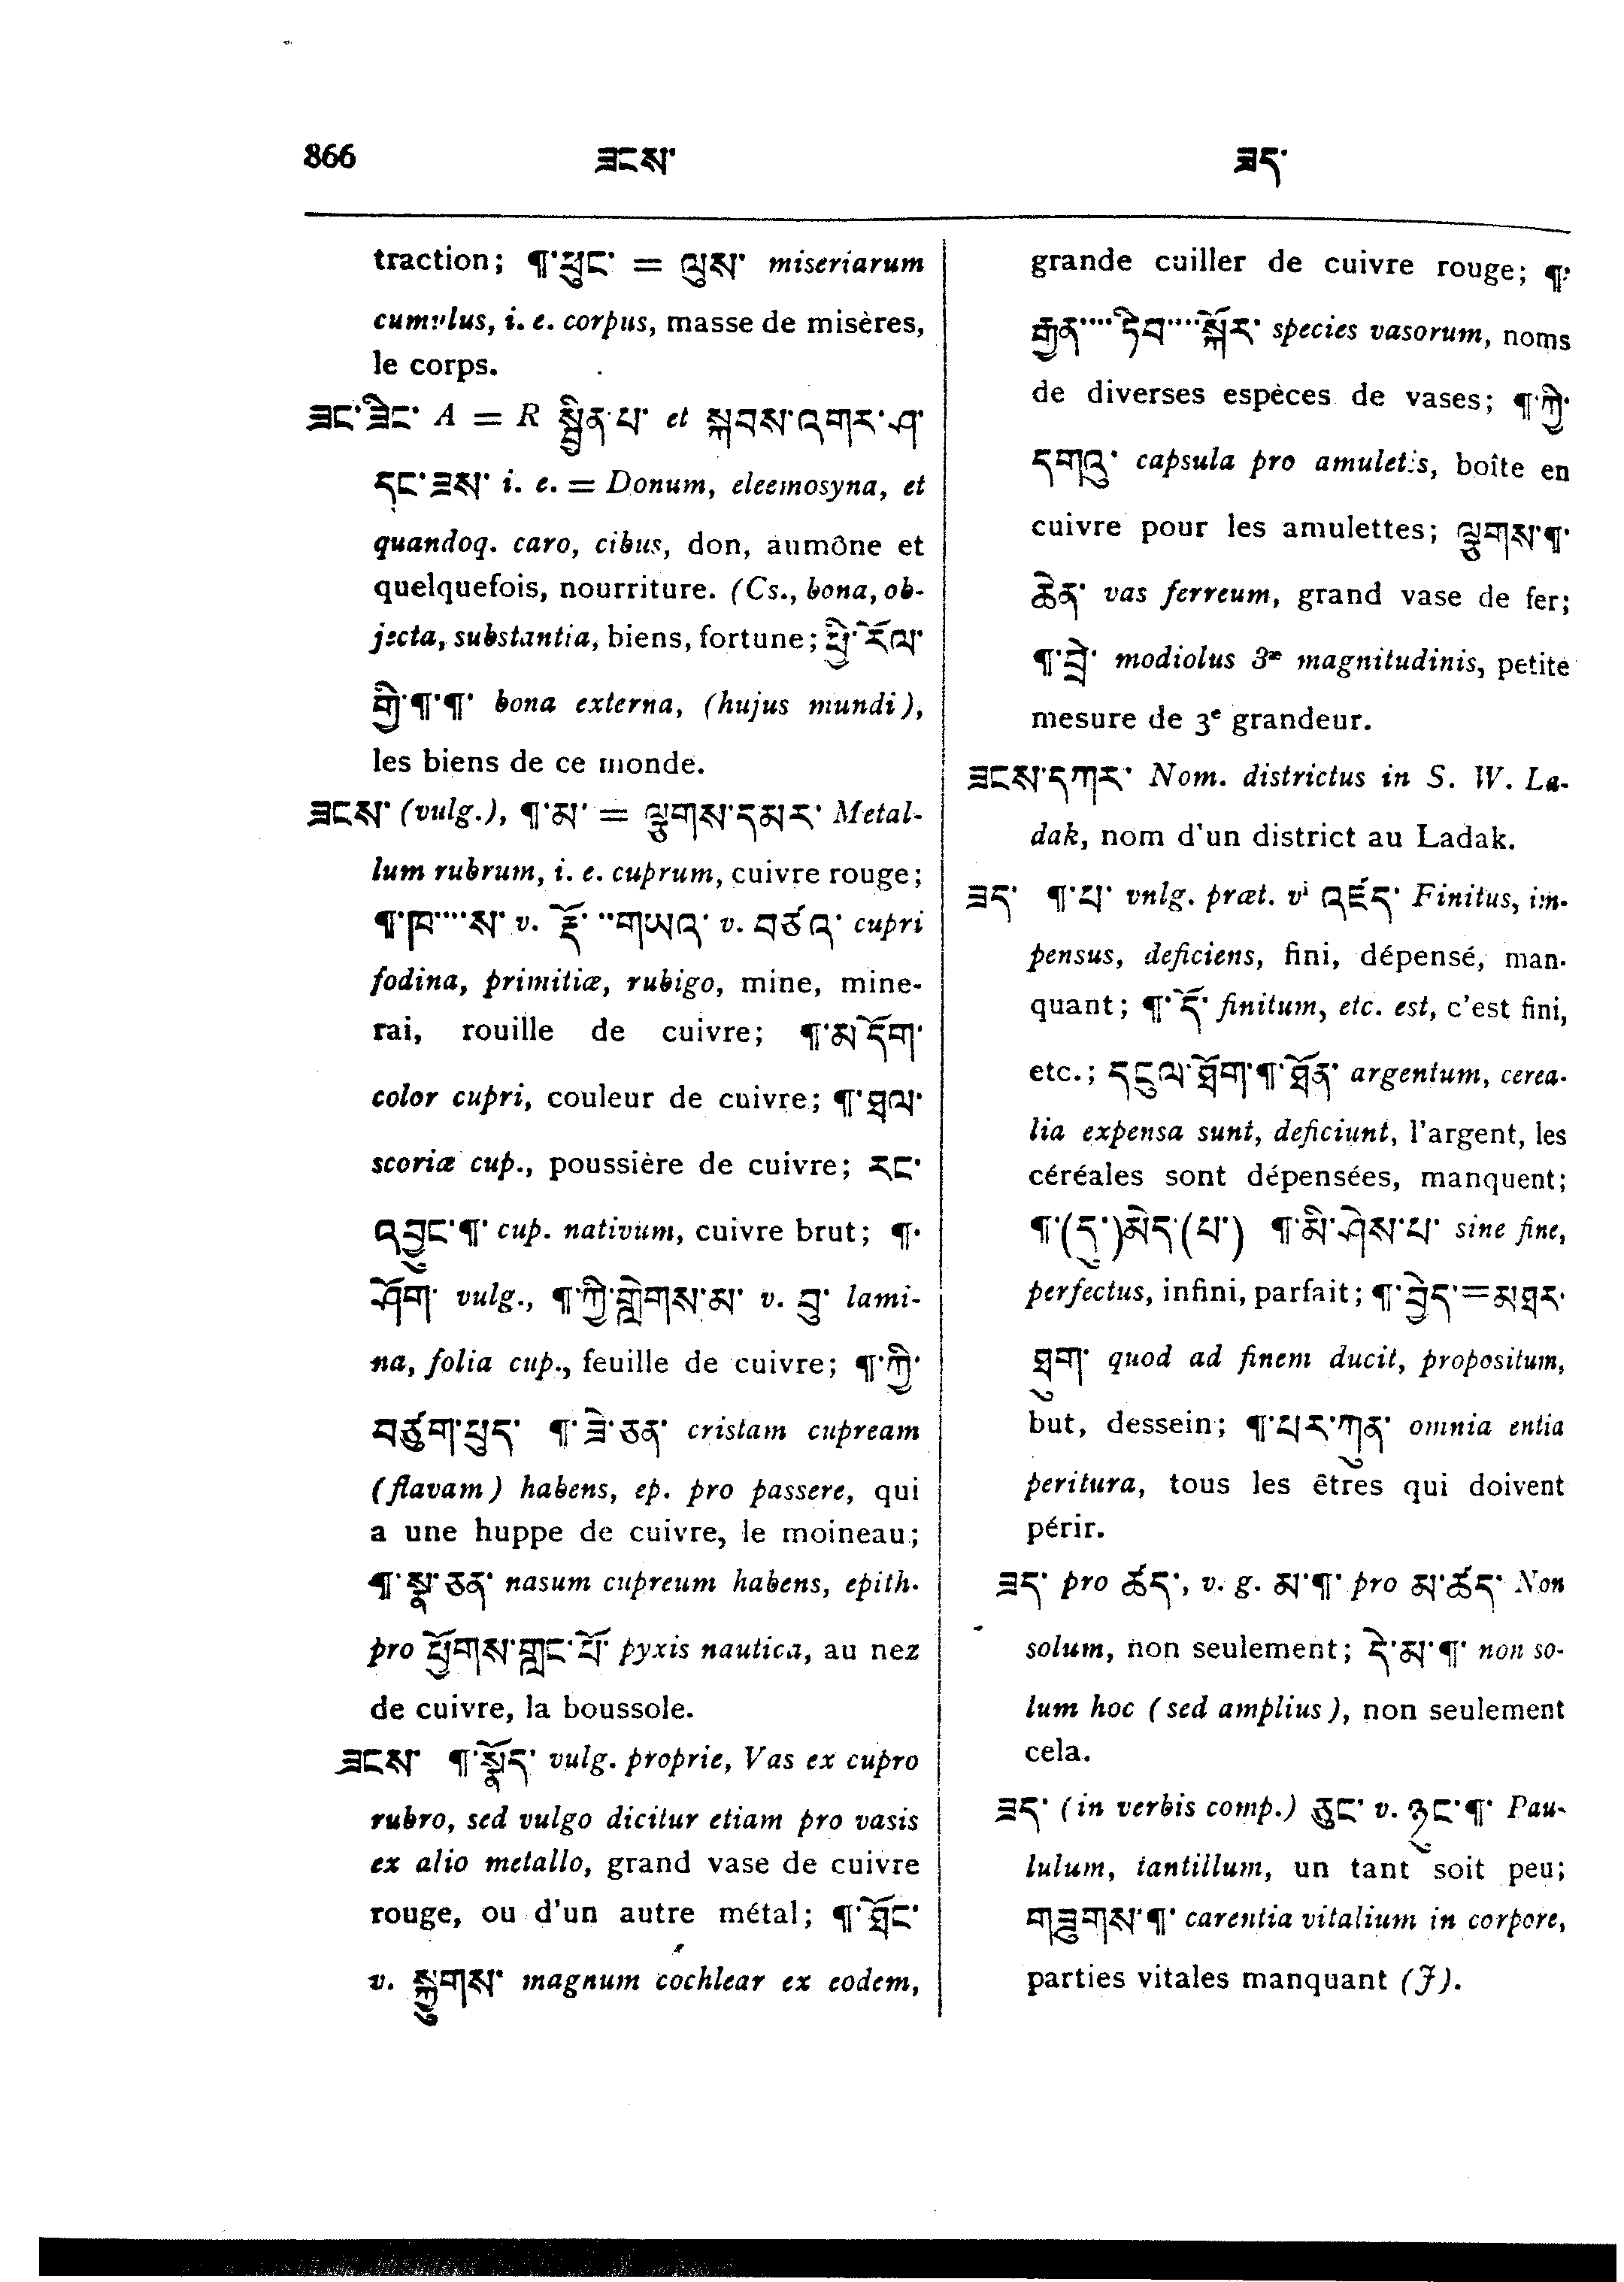 866 ཟངས་ ཟད་
traction; ¶་ཕུང་ = ལུས་ miseriarum
cumulus, i. e. corpus, masse de misères,
le corps.
ཟང་ཟིང་ A = R སྦྱིན་པ་ et སྐབས་འགར་ཤ་
དང་ཟས་ i. e. = Donum, eleemosyna, et
quandoq. caro, cibus, don, aumône et
quelquefois, nourriture. (Cs., bona, ob-
jecta, substantia, biens, fortune; ཕྱི་རོལ་
གྱི་¶་¶་ bona externa, (hujus mundi),
les biens de ce monde.
ཟངས་ (vulg.), ¶་མ་ = ལྕགས་དམར་ Metal-
lum rubrum, i. e. cuprum, cuivre rouge;
¶་ཁ་...ས་ v. རྡོ་ ..གཡའ་ v. བཙའ་ cupri
fodina, primitiæ, rubigo, mine, mine-
rai, rouille de cuivre; ¶་མདོག་
color cupri, couleur de cuivre; ¶་ཐལ་
scoriæ cup., poussière de cuivre; རང་
འབྱུང་¶་ cup. nativum, cuivre brut; ¶་
ཤོག་ vulg., ¶་ཀྱི་གླེགས་མ་ v. བུ་ lami-
na, folia cup., feuille de cuivre; ¶་ཀྱི་
བཙུག་ཕུད་ ¶་ཟེ་ཅན་ cristam cupream
(flavam) habens, ep. pro passere, qui
a une huppe de cuivre, le moineau;
¶་སྣ་ཅན་ nasum cupreum habens, epith.
pro ཕྱོགས་གླང་པོ་ pyxis nautica, au nez
de cuivre, la boussole.
ཟངས་ ¶་སྣོད་ vulg. proprie, Vas ex cupro
rubro, sed vulgo dicitur etiam pro vasis
ex alio metallo, grand vase de cuivre
rouge, ou d'un autre métal; ¶་ཐོང་
v. སྐྱུགས་ magnum cochlear ex eodem,
grande cuiller de cuivre rouge; ¶་
རྒྱན་....ཏིབ་....སྐོར་ species vasorum, noms
de diverses espèces de vases; ¶་ཀྱི་
དགའུ་ capsula pro amuletis, boîte en
cuivre pour les amulettes; ལྕགས་¶་
ཆེན་ vas ferreum, grand vase de fer;
¶་བྲེ་ modiolus 3æ magnitudinis, petite
mesure de 3e grandeur.
ཟངས་དཀར་ Nom. districtus in S. W. La-
dak, nom d'un district au Ladak.
ཟད་ ¶་པ་ vnlg. præt. vi འཛད་ Finitus, im-
pensus, deficiens, fini, dépensé, man-
quant; ¶་དོ་ finitum, etc. est, c'est fini,
etc.; དངུལ་ཐོག་¶་ཐོན་ argentum, cerea-
lia expensa sunt, deficiunt, l'argent, les
céréales sont dépensées, manquent;
¶་(དུ་)མེད་(པ་) ¶་མི་ཤེས་པ་ sine fine,
perfectus, infini, parfait; ¶་བྱེད་=མཐར་
ཐུག་ quod ad finem ducit, propositum,
but, dessein; ¶་པར་ཀུན་ omnia entia
peritura, tous les êtres qui doivent
périr.
ཟད་ pro ཚད་, v. g. མ་¶་ pro མ་ཚད་ Non
solum, non seulement; དེ་མ་¶་ non so-
lum hoc (sed amplius), non seulement
cela.
ཟད་ (in verbis comp.) ཅུང་ v. ཉུང་¶་ Pau-
lulum, tantillum, un tant soit peu;
གཟུགས་¶་ carentia vitalium in corpore,
parties vitales manquant (J).